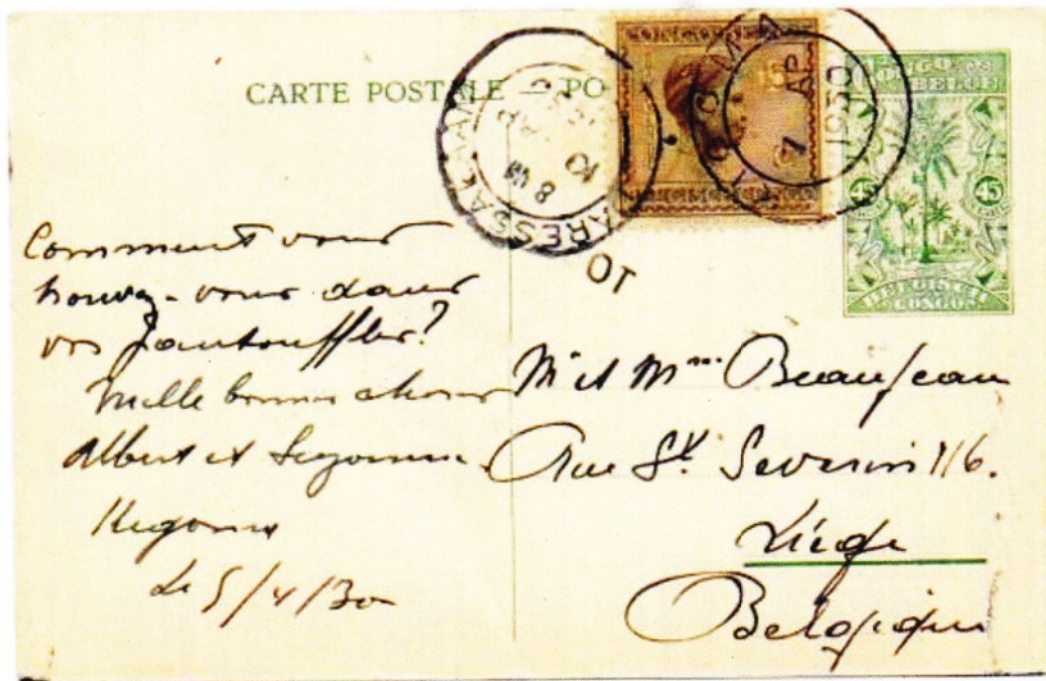 CARTE POSTALE — PO
CONGO BELGE
15
KIGOMA
7 AP
1930
DARESSALAAM
10 AP
8
10
45 45
BELGISCH
CONGO
Comment vous
trouvez-vous dans
vos pantouffles?
Mille bonnes choses
Albert et Suzanne
Kigoma
Le 5/4/30
Mr et Mme Beaujean
Rue St. Severin 116.
Liége
Belgique